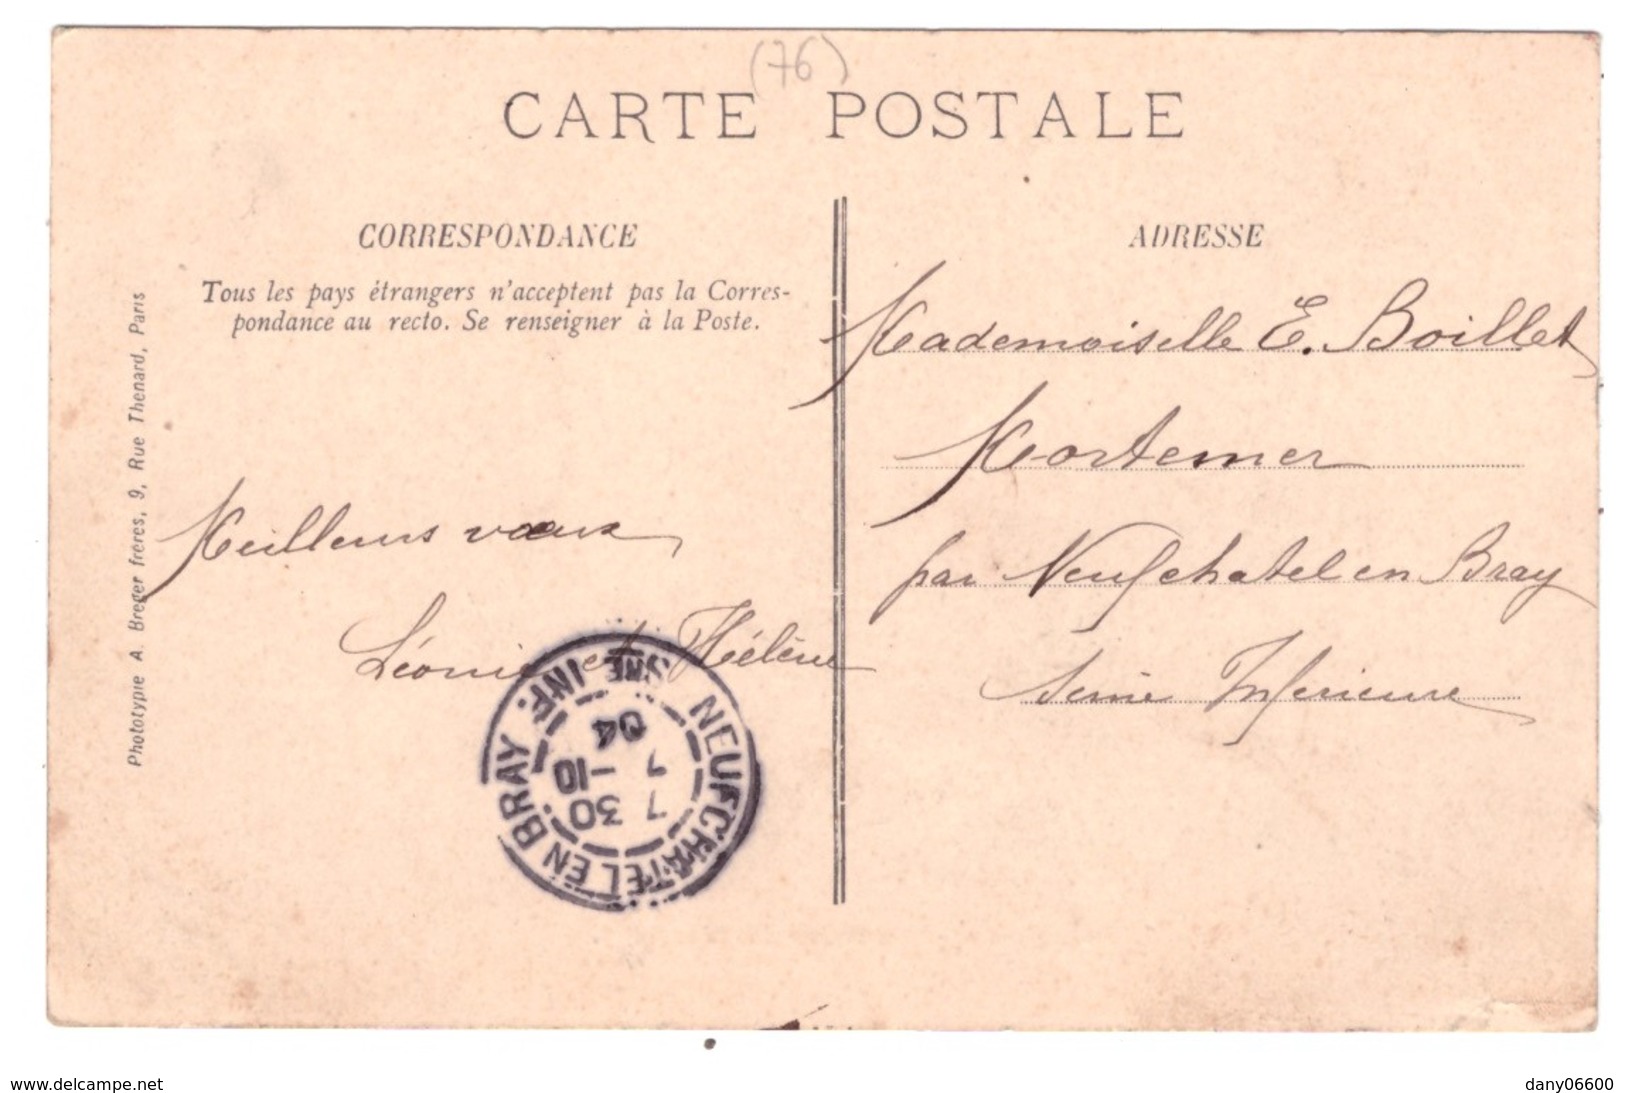 (76)
CARTE POSTALE
CORRESPONDANCE
Tous les pays étrangers n'acceptent pas la Corres-
pondance au recto. Se renseigner à la Poste.
Meilleurs vœux
Léonie et Hélène
ADRESSE
Mademoiselle E. Boillet
Mortemer
par Neufchatel en Bray
Seine Inférieure
Phototypie A. Breger frères, 9, Rue Thenard, Paris
NEUFCHÂTEL EN BRAY
SNE INFRE
7 30
7 -10
04
www.delcampe.net
dany06600